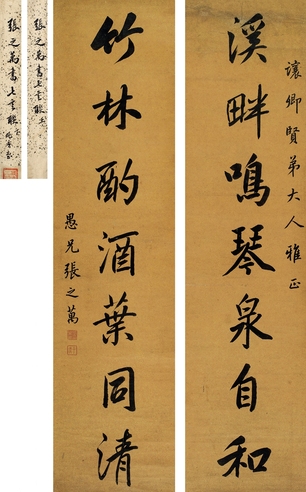 讓卿賢弟大人雅正
溪畔鳴琴泉自和
竹林酌酒葉同清
愚兄張之萬
張之萬書七言聯
張之萬書七言聯